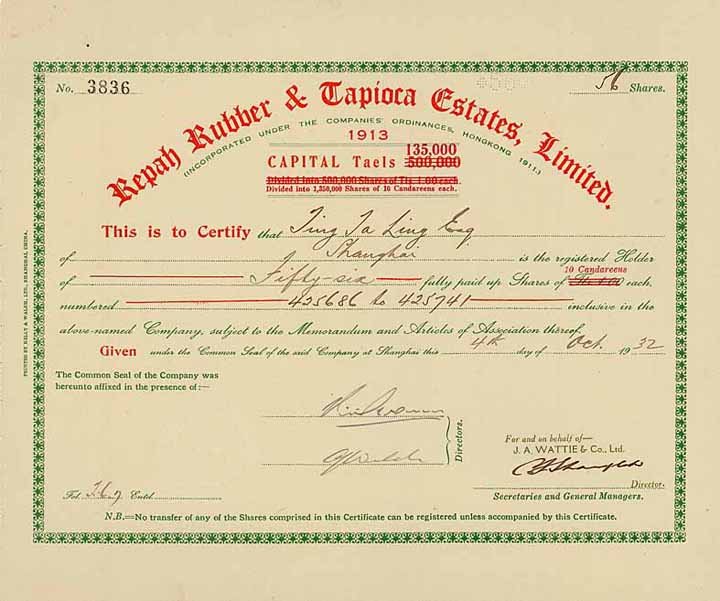 No. 3836
56 Shares.
Repah Rubber & Tapioca Estates, Limited.
(INCORPORATED UNDER THE COMPANIES' ORDINANCES, HONGKONG 1911.)
1913
135,000
CAPITAL Taels 500,000
Divided into 500,000 Shares of Tls. 1.00 each.
Divided into 1,350,000 Shares of 10 Candareens each.
This is to Certify that Ting Ta Ling Esq
of Shanghai is the registered Holder
10 Candareens
of Fifty-six fully paid up Shares of Tls. 1.00 each,
numbered 425686 to 425741 inclusive in the
above-named Company, subject to the Memorandum and Articles of Association thereof.
Given under the Common Seal of the said Company at Shanghai this 4th day of Oct. 1932
The Common Seal of the Company was
hereunto affixed in the presence of:—
Directors.
For and on behalf of—
J. A. WATTIE & Co., Ltd.
Director.
Secretaries and General Managers.
Fol. Entd.
N.B.—No transfer of any of the Shares comprised in this Certificate can be registered unless accompanied by this Certificate.
PRINTED BY KELLY & WALSH, LTD., SHANGHAI, CHINA.